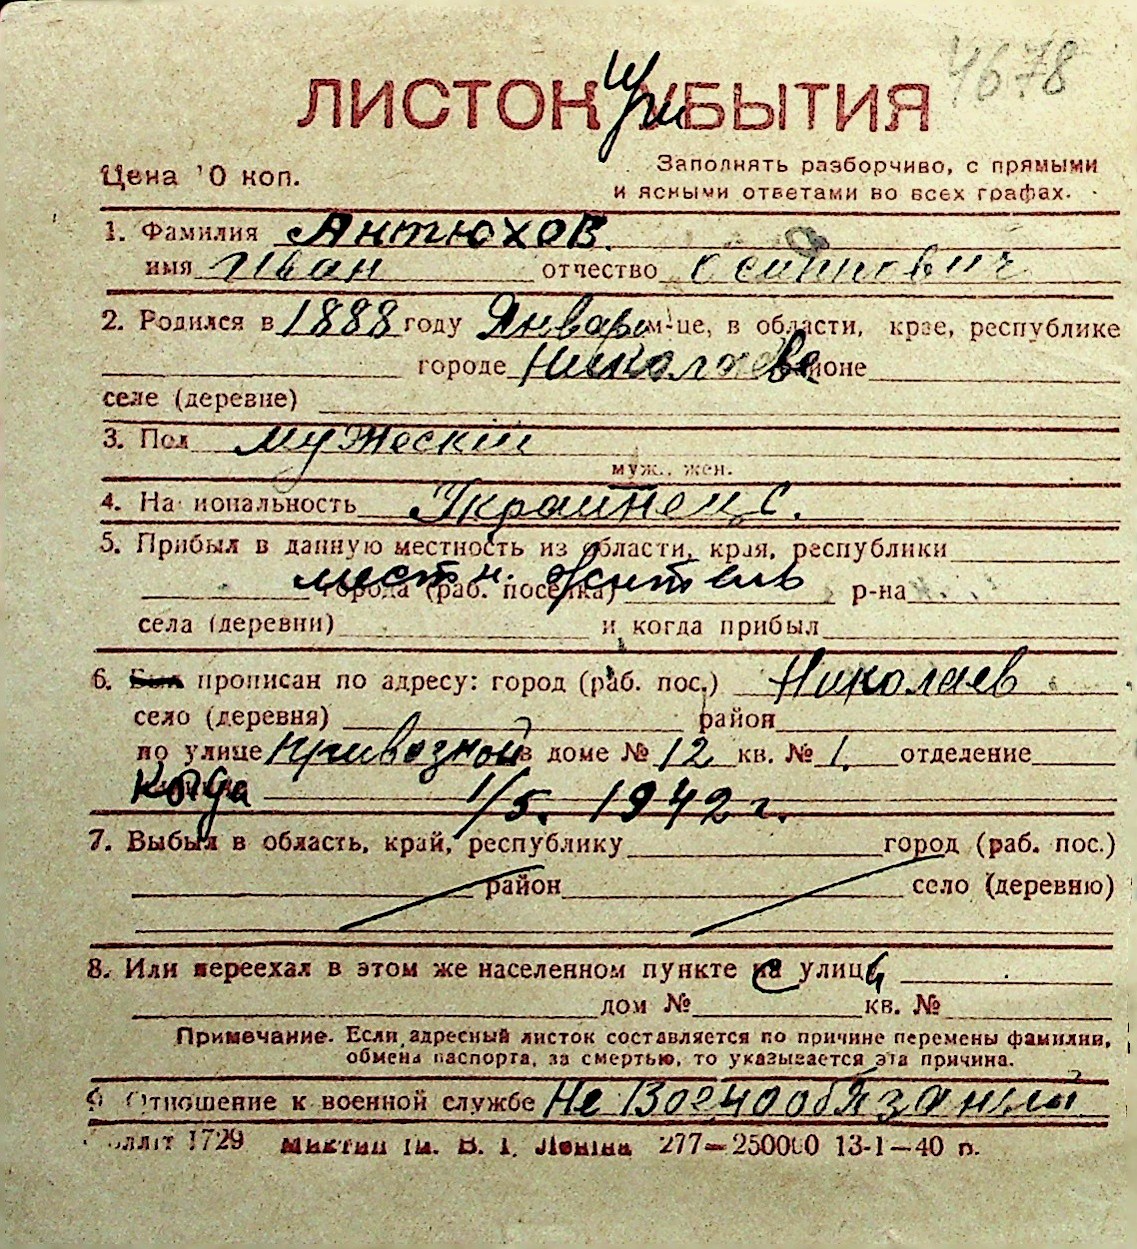 4678
ЛИСТОК при УБЫТИЯ
Цена 10 коп.
Заполнять разборчиво, с прямыми
и ясными ответами во всех графах.
1. Фамилия Антюхов.
имя Иван отчество Осиппович
2. Родился в 1888 году Январь м-це, в области, крае, республике
городе Николаеве районе
селе (деревне)
3. Пол мужеский
муж., жен.
4. Национальность Украинец.
5. Прибыл в данную местность из области, края, республики
местн. житель
города (раб. поселка) р-на
села (деревни) и когда прибыл
6. Был прописан по адресу: город (раб. пос.) Николаев
село (деревня) район
по улице Привозной в доме № 12 кв. № 1. отделение
когда 1/5. 1942 г.
7. Выбыл в область, край, республику город (раб. пос.)
район село (деревню)
8. Или переехал в этом же населенном пункте с улицы
дом № кв. №
Примечание. Если адресный листок составляется по причине перемены фамилии,
обмена паспорта, за смертью, то указывается эта причина.
9 Отношение к военной службе Не Военообязаный
1729 їм. В. І. Леніна 277—250000 13-І—40 р.